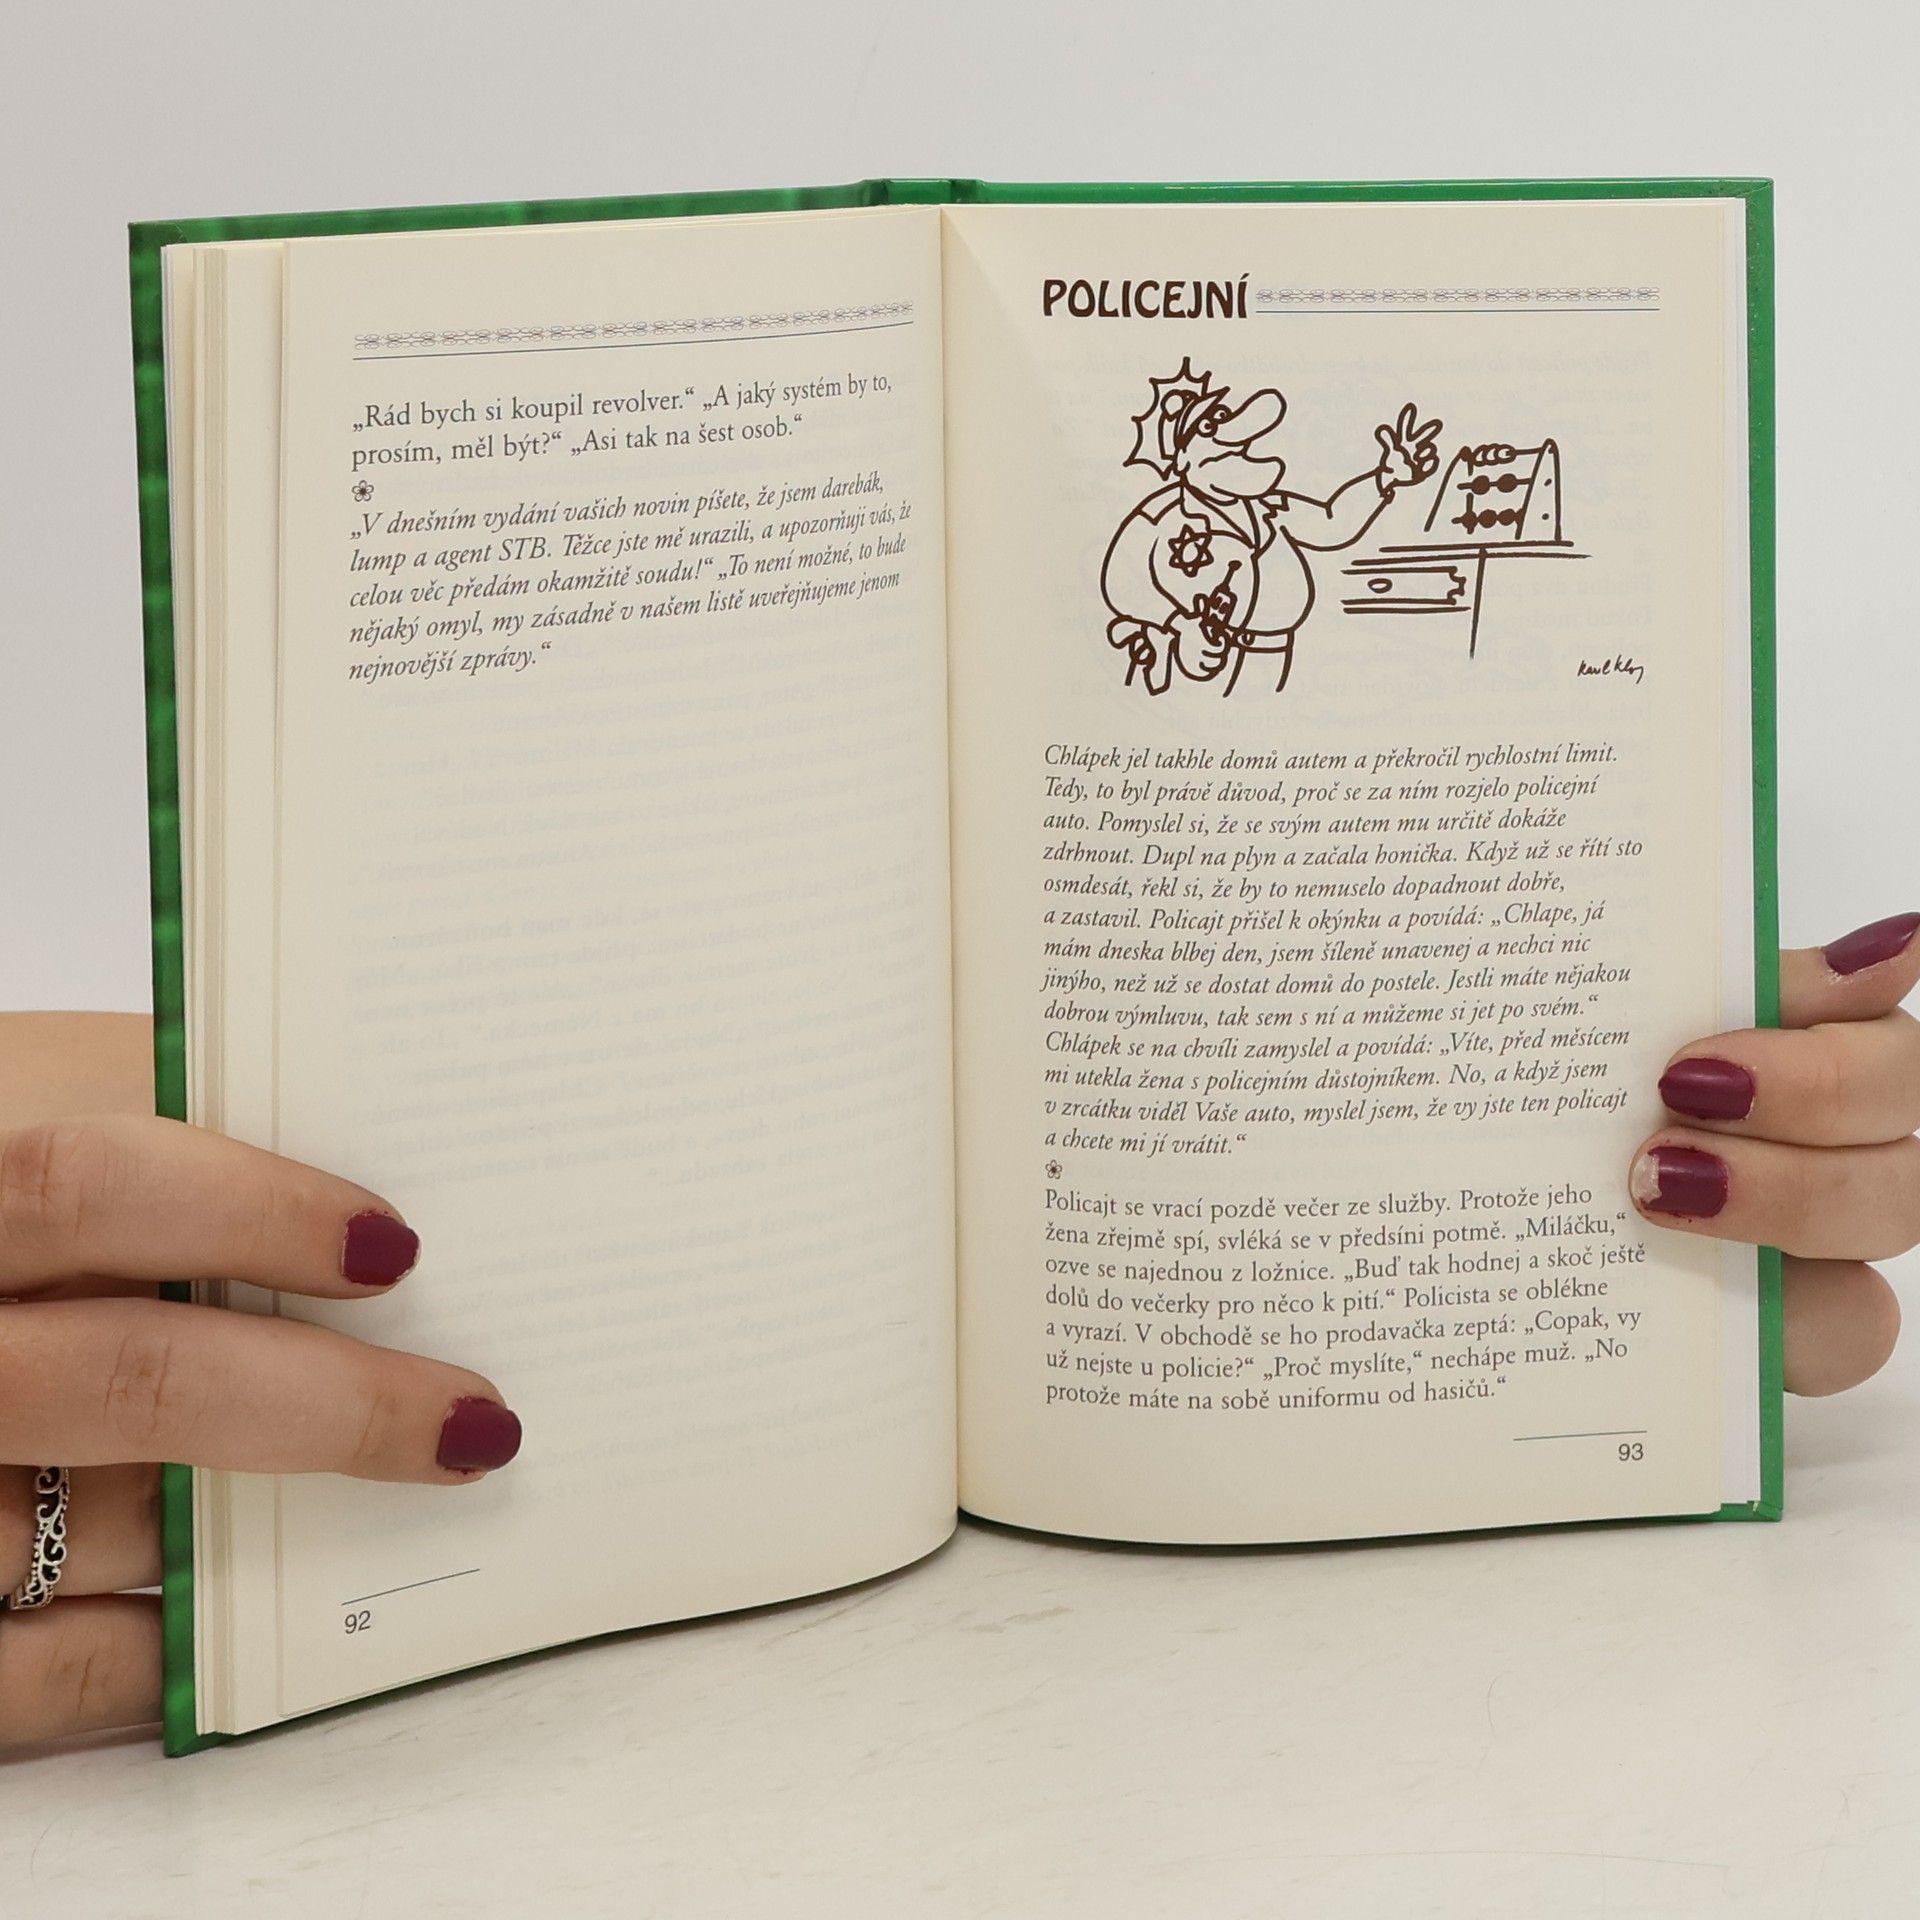 „Rád bych si koupil revolver.“ „A jaký systém by to,
prosím, měl být?“ „Asi tak na šest osob.“
„V dnešním vydání vašich novin píšete, že jsem darebák,
lump a agent STB. Těžce jste mě urazili, a upozorňuji vás, že
celou věc předám okamžitě soudu!“ „To není možné, to bude
nějaký omyl, my zásadně v našem listě uveřejňujeme jenom
nejnovější zprávy.“
92
POLICEJNÍ
Chlápek jel takhle domů autem a překročil rychlostní limit.
Tedy, to byl právě důvod, proč se za ním rozjelo policejní
auto. Pomyslel si, že se svým autem mu určitě dokáže
zdrhnout. Dupl na plyn a začala honička. Když už se řítí sto
osmdesát, řekl si, že by to nemuselo dopadnout dobře,
a zastavil. Policajt přišel k okýnku a povídá: „Chlape, já
mám dneska blbej den, jsem šíleně unavenej a nechci nic
jinýho, než už se dostat domů do postele. Jestli máte nějakou
dobrou výmluvu, tak sem s ní a můžeme si jet po svém.“
Chlápek se na chvíli zamyslel a povídá: „Víte, před měsícem
mi utekla žena s policejním důstojníkem. No, a když jsem
v zrcátku viděl Vaše auto, myslel jsem, že vy jste ten policajt
a chcete mi jí vrátit.“
Policajt se vrací pozdě večer ze služby. Protože jeho
žena zřejmě spí, svléká se v předsíni potmě. „Miláčku,“
ozve se najednou z ložnice. „Buď tak hodnej a skoč ještě
dolů do večerky pro něco k pití.“ Policista se oblékne
a vyrazí. V obchodě se ho prodavačka zeptá: „Copak, vy
už nejste u policie?“ „Proč myslíte,“ nechápe muž. „No
protože máte na sobě uniformu od hasičů.“
93